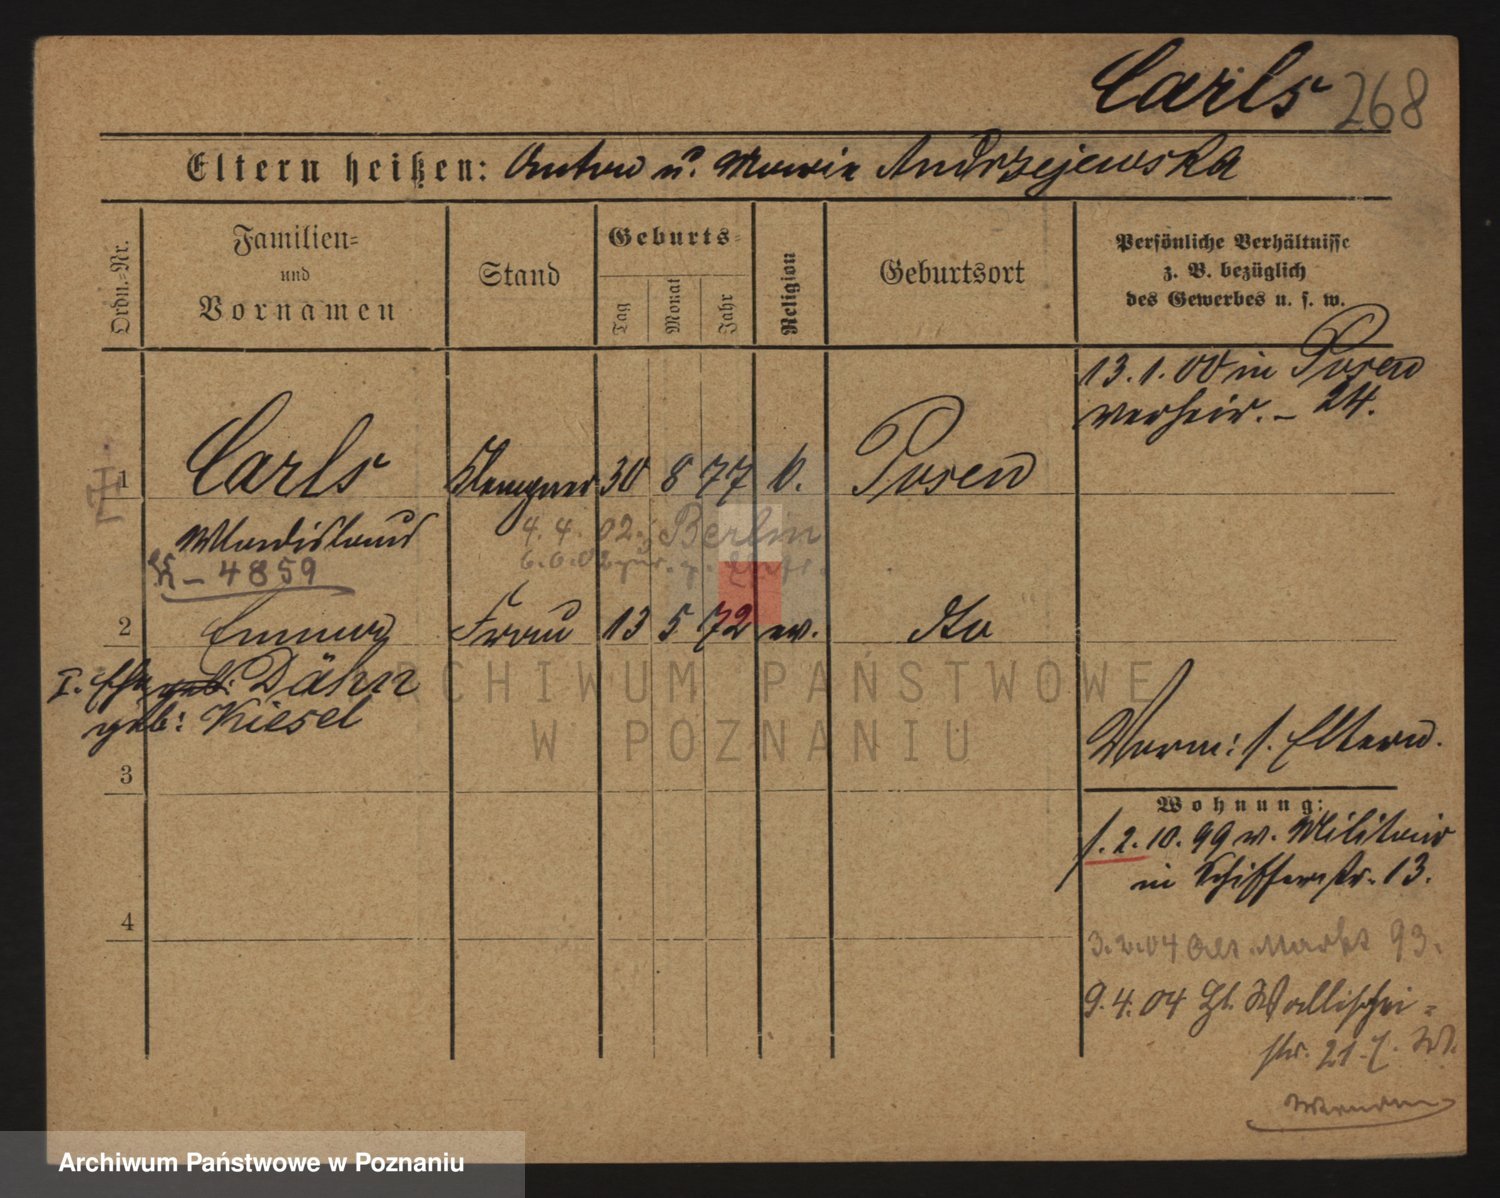 Carls 268
Eltern heißen: Anton u. Marie Andrzejewska
Ordn.-Nr.
Familien-
und
Vornamen
Stand
Geburts-
Tag
Monat
Jahr
Religion
Geburtsort
Persönliche Verhältnisse
z. B. bezüglich
des Gewerbes u. s. w.
13.1.00 in Posen
verheir. – 24.
1 Carls Klempner 30 8 77 k. Posen
Wladislaus
4.4.02. Berlin
K – 4859
6.6.02 zur.
2 Emma Frau 13 5 72 ev. do
I. Ehe geb. Dähn
geb: Kiesel
ARCHIWUM PAŃSTWOWE
W POZNANIU
Vorm: s. Eltern.
3
Wohnung:
s. 2.10.99 v. Militair
in Schifferstr. 13.
4
3.2.04 Alt. Markt 93.
9.4.04 Wallischei-
str. 21
Archiwum Państwowe w Poznaniu